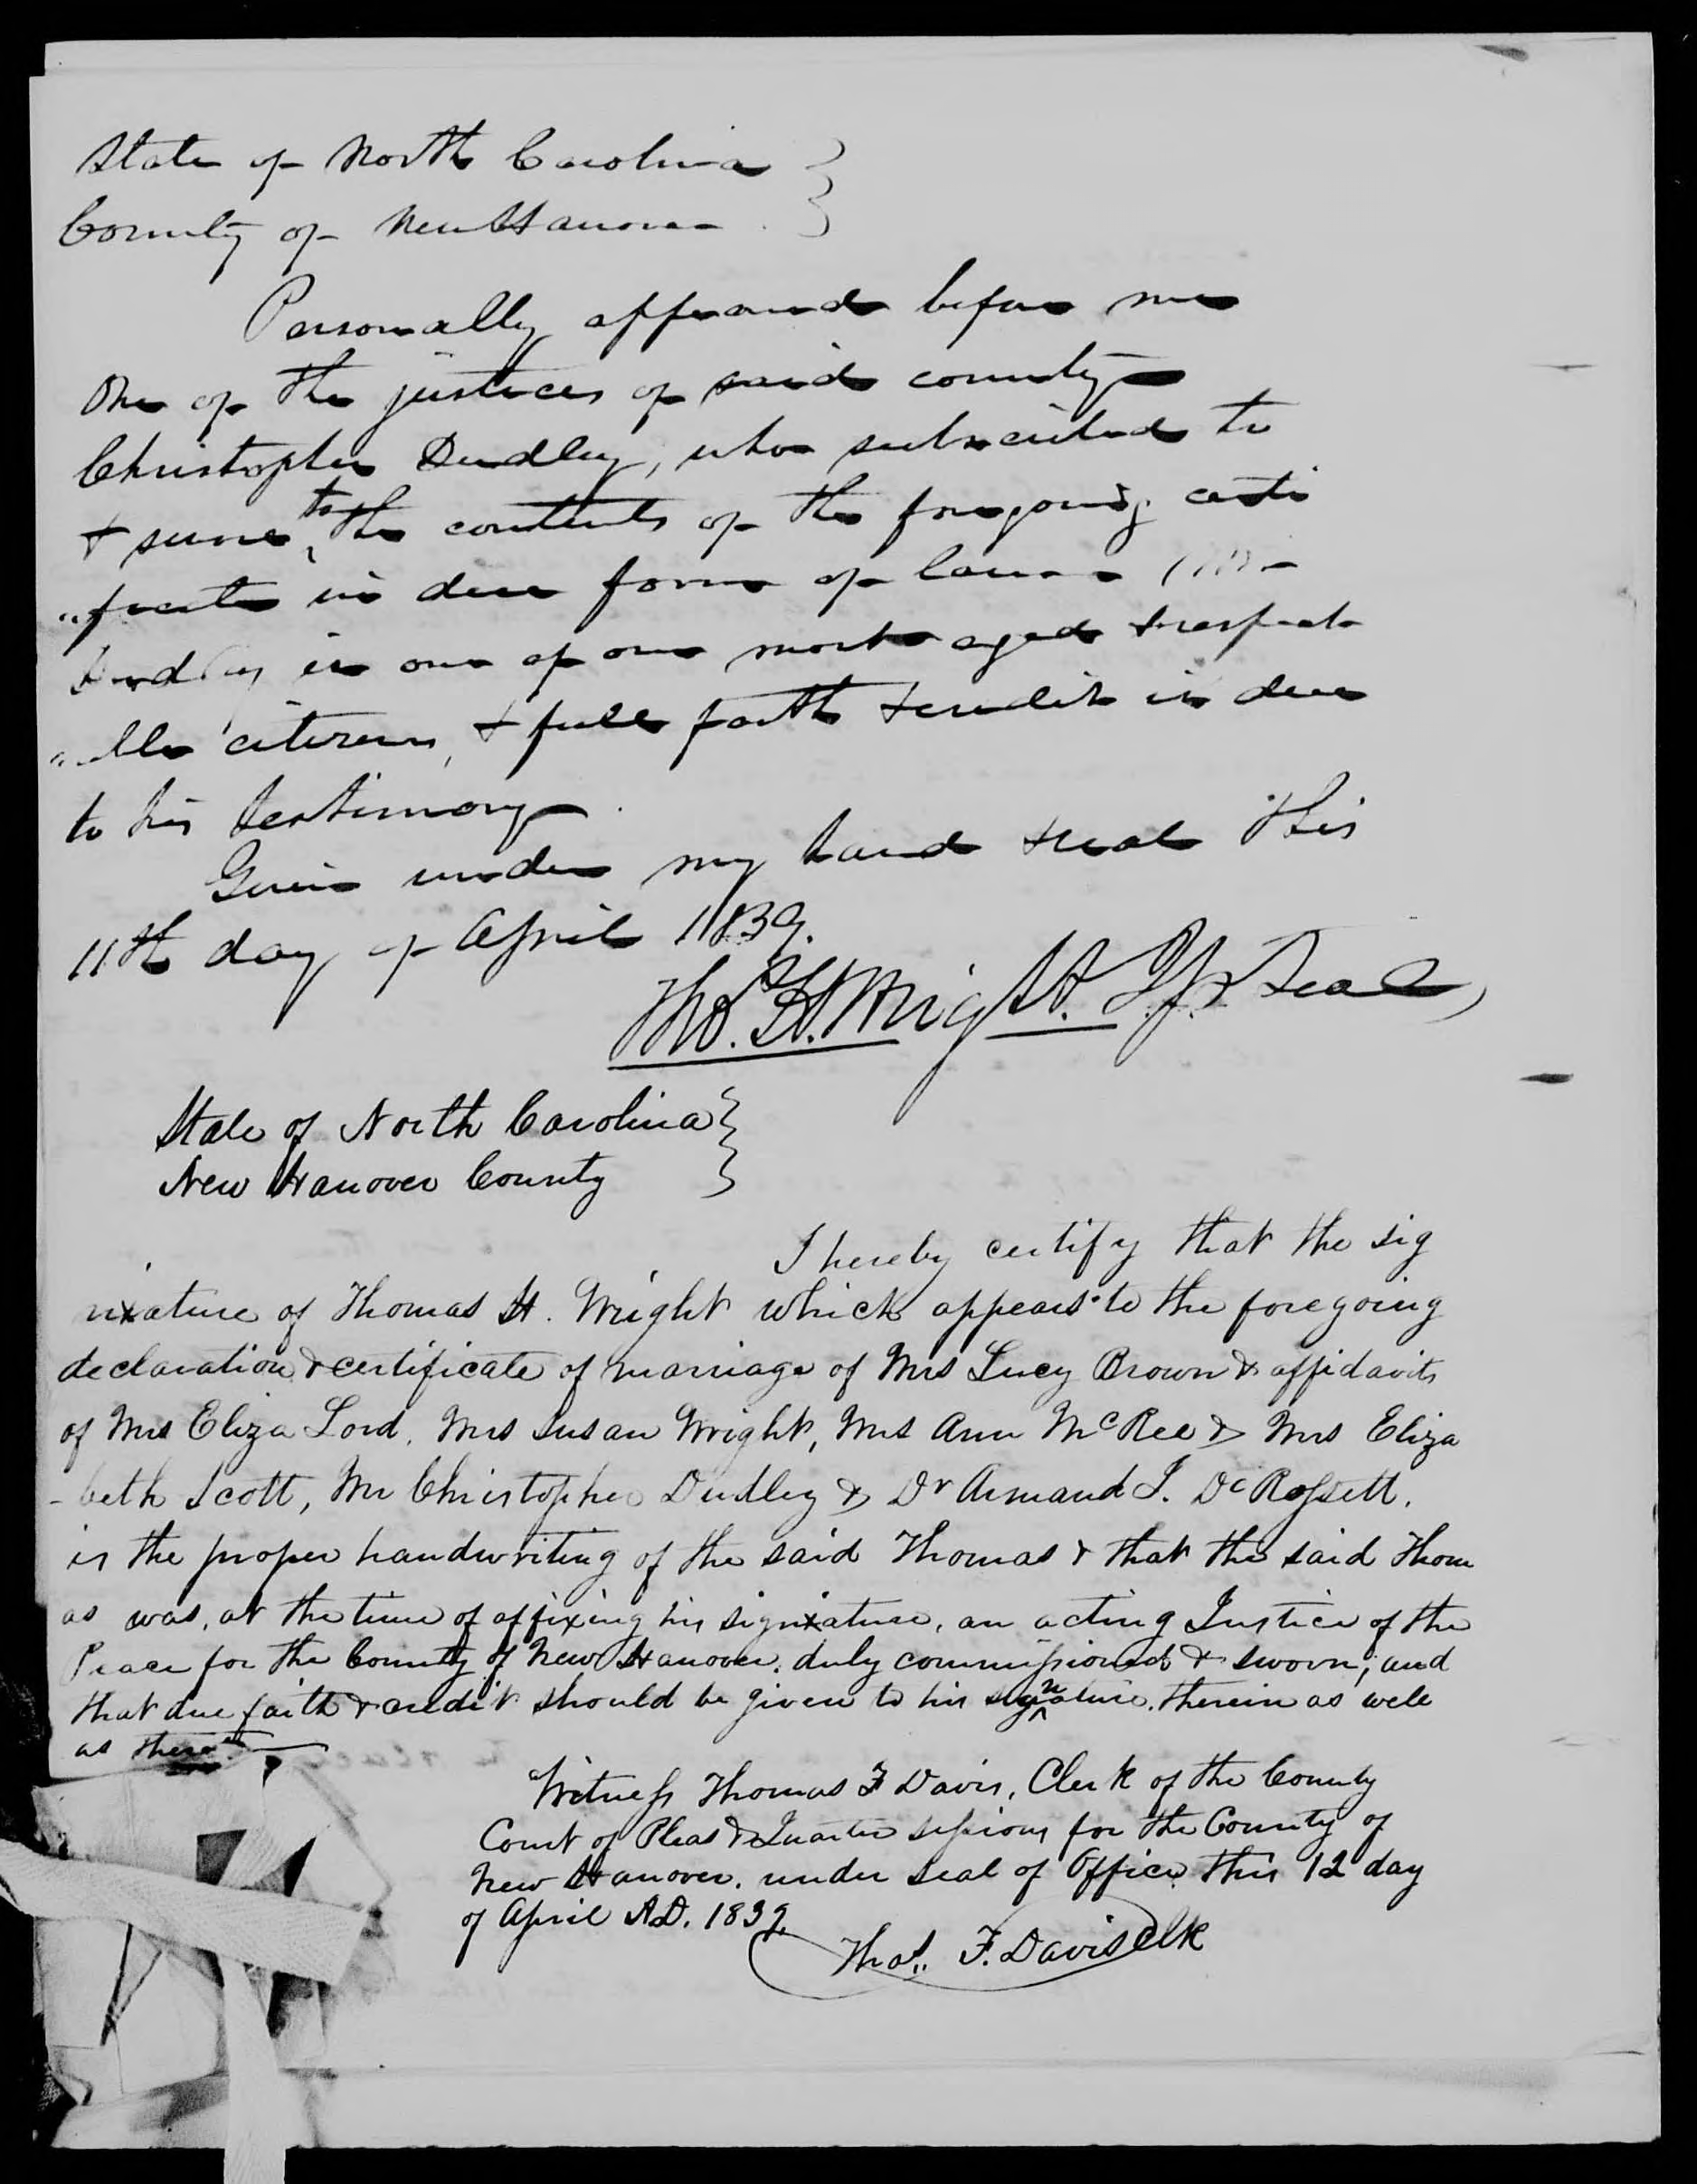 State of North Carolina }
County of New Hanover }
Personally appeared before me
One of the justices of said county
Christopher Dudley, who subscribed to
& swore to the contents of the foregoing certi
"ficate in due form of law
Dudley is one of our most aged & respect
"able citizens, & full faith & credit is due
to his testimony
Given under my hand & seal this
11th day of April 1839.
Thos. H. Wright. J.P. Seal
State of North Carolina }
New Hanover County }
I hereby certify that the sig
nature of Thomas H. Wright which appears to the foregoing
declaration & certificate of marriage of Mrs Lucy Brown & affidavits
of Mrs Eliza Lord, Mrs Susan Wright, Mrs Ann McRee & Mrs Eliza
-beth Scott, Mr Christopher Dudley & Dr Armand J. De Rossett.
is the proper handwriting of the said Thomas & that the said Thom
as was, at the time of affixing his signature, an acting Justice of the
Peace for the County of New Hanover, duly commissioned & sworn, and
that due faith & credit should be given to his signature, therein as well
as
Witness Thomas F Davis, Clerk of the County
Court of Pleas & Quarter sessions for the County of
New Hanover, under seal of Office this 12 day
of April A.D. 1839.
Thos. F. Davis Clk